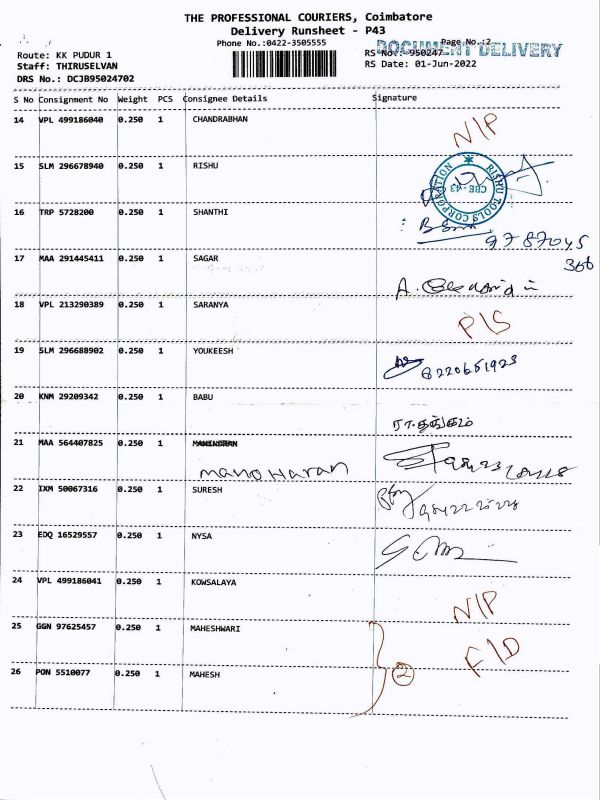 THE PROFESSIONAL COURIERS, Coimbatore
Delivery Runsheet - P43
Phone No.:0422-3505555
Page No.:2
DOCUMENT DELIVERY
Route: KK PUDUR 1
RS No.: 950247
Staff: THIRUSELVAN
RS Date: 01-Jun-2022
DRS No.: DCJB95024702
S No Consignment No Weight PCS Consignee Details Signature
14 VPL 499186040 0.250 1 CHANDRABHAN
N/P
15 SLM 296678940 0.250 1 RISHU
RISHU TOOLS CORPORATION
CBE-43
16 TRP 5728200 0.250 1 SHANTHI
9787045
366
17 MAA 291445411 0.250 1 SAGAR
18 VPL 213290389 0.250 1 SARANYA
P/S
19 SLM 296688902 0.250 1 YOUKEESH
8220651923
20 KNM 29209342 0.250 1 BABU
ரா.தங்கம்
21 MAA 564407825 0.250 1
manoHaran
22 IXM 50067316 0.250 1 SURESH
23 EDQ 16529557 0.250 1 NYSA
24 VPL 499186041 0.250 1 KOWSALAYA
N/P
25 GGN 97625457 0.250 1 MAHESHWARI
F/D
26 PON 5510077 0.250 1 MAHESH
2